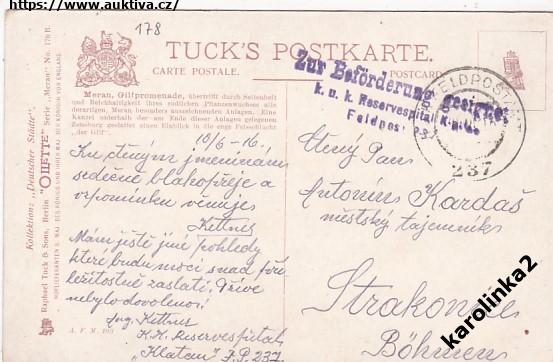 https://www.auktiva.cz/
178
TUCK'S POSTKARTE.
CARTE POSTALE.
POSTCARD.
Meran, Gilfpromenade, übertrifft durch Seltenheit
und Reichhaltigkeit ihres südlichen Pflanzenwuchses alle
derartigen. Meran besonders auszeichnenden Anlagen. Eine
Kanzel unterhalb der am Ende dieser Anlagen gelegenen
Zenoburg gestattet einen Einblick in die enge Felsschlucht
„der Gilf“.
Kollektion: „Deutscher Städte“.
Raphael Tuck & Sons, Berlin "OILETTE" Serie „Meran“ No. 178 B.
HOFLIEFERANTEN S. MAJ. DES KÖNIGS UND IHRER MAJ. DER KÖNIGIN VON ENGLAND.
Zur Beförderung geeignet
k. u. k. Reservespital
Feldpost 237
FELDPOSTAMT
237
10/6 - 16.
Ku ctěným jmeninám
srdečně blahopřeje a
vzpomínku věnuje
Kettner
Mám ještě jiné pohledy
které budu moci snad při
ležitostně zaslati. Dříve
nebylo dovoleno!
Ing. Kettner
K.K. Reservespital
"Klatau" F.P. 237
Ctěný Pan
Antonín Kardaš
městský tajemník
Strakonice
Böhmen
karolinka2